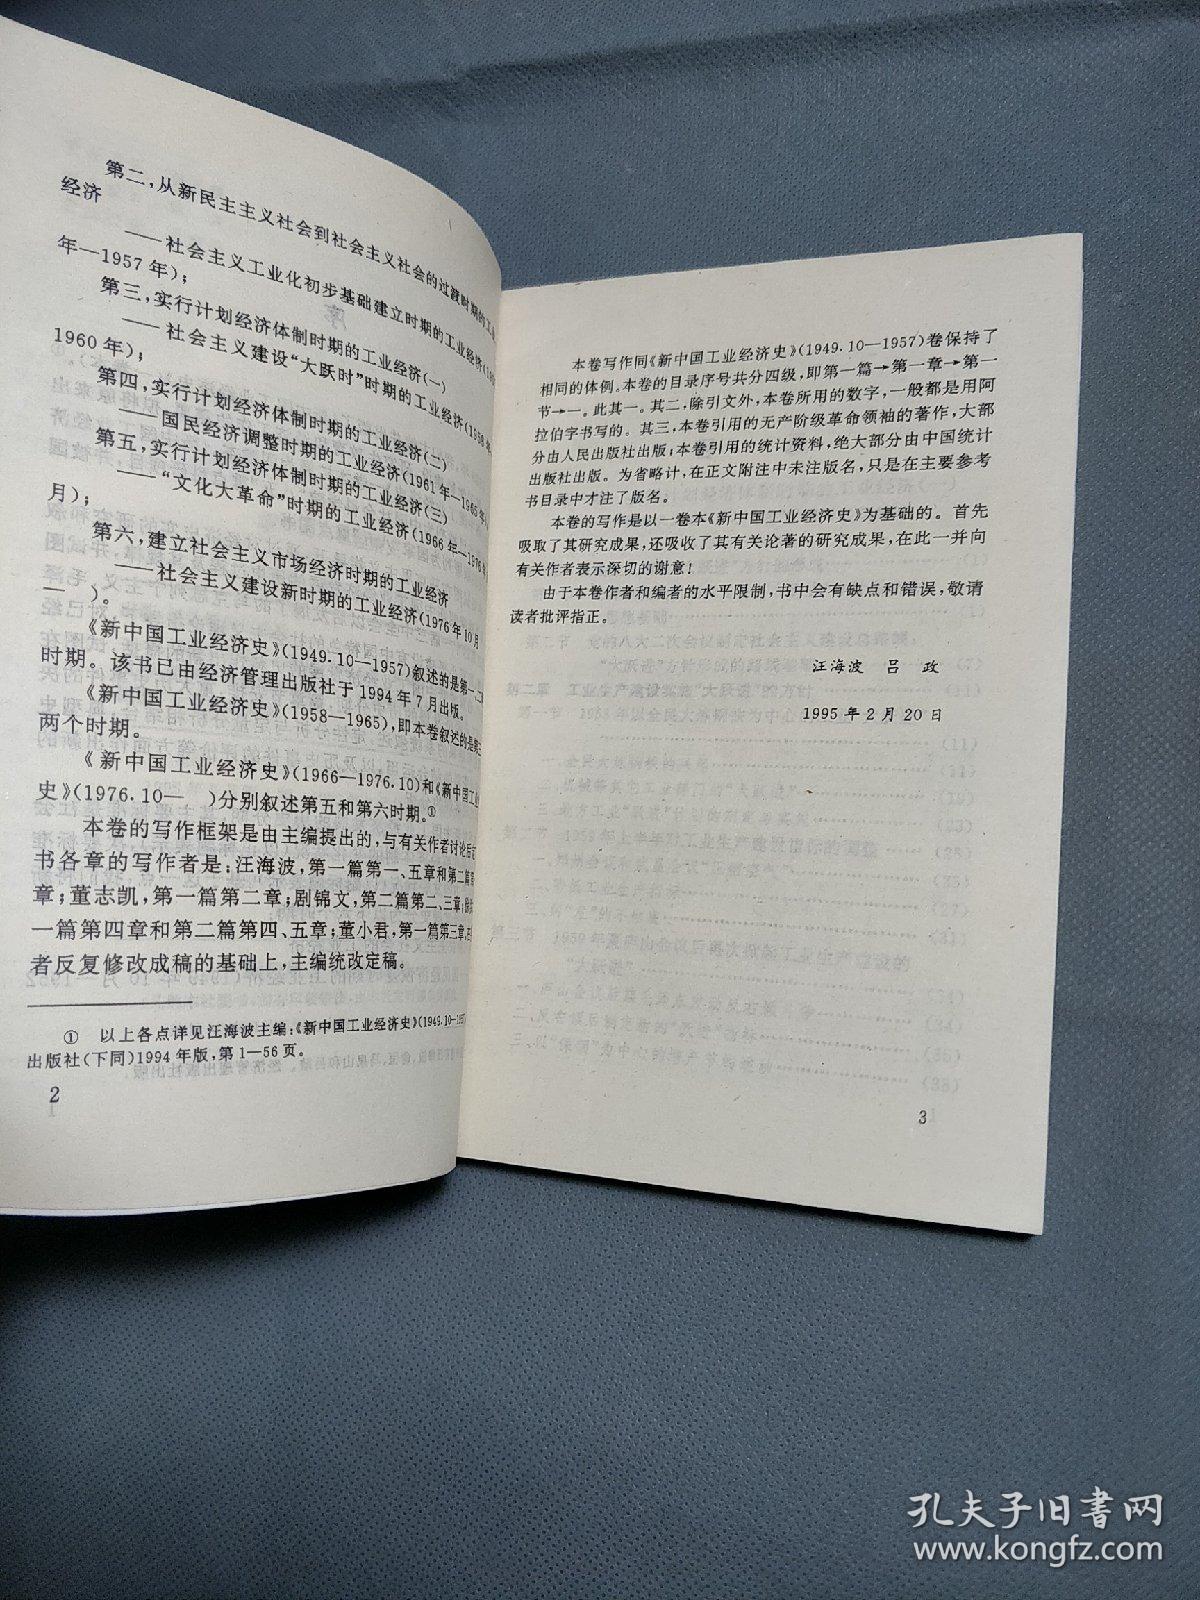 第二，从新民主主义社会到社会主义社会的过渡时期的工业
经济
——社会主义工业化初步基础建立时期的工业经济(195
年—1957年)；
第三，实行计划经济体制时期的工业经济(一)
——社会主义建设“大跃时”时期的工业经济(1958年
1960年)；
第四，实行计划经济体制时期的工业经济(二)
——国民经济调整时期的工业经济(1961年—1965年)
第五，实行计划经济体制时期的工业经济(三)
——“文化大革命”时期的工业经济(1966年—1976年
月)；
第六，建立社会主义市场经济时期的工业经济
——社会主义建设新时期的工业经济(1976年10月
— )。
《新中国工业经济史》(1949.10—1957)叙述的是第一、二
时期。该书已由经济管理出版社于1994年7月出版。
《新中国工业经济史》(1958—1965)，即本卷叙述的是第三
两个时期。
《新中国工业经济史》(1966—1976.10)和《新中国工业
史》(1976.10— )分别叙述第五和第六时期。①
本卷的写作框架是由主编提出的，与有关作者讨论后
书各章的写作者是：汪海波，第一篇第一、五章和第二篇
章；董志凯，第一篇第二章；剧锦文，第二篇第二、三章；
一篇第四章和第二篇第四、五章；董小君，第一篇第三章。
者反复修改成稿的基础上，主编统改定稿。
① 以上各点详见汪海波主编：《新中国工业经济史》(1949.10—195
出版社(下同)1994年版，第1—56页。
2
本卷写作同《新中国工业经济史》(1949.10—1957)卷保持了
相同的体例。本卷的目录序号共分四级，即第一篇→第一章→第一
节→一。此其一。其二，除引文外，本卷所用的数字，一般都是用阿
拉伯字书写的。其三，本卷引用的无产阶级革命领袖的著作，大部
分由人民出版社出版；本卷引用的统计资料，绝大部分由中国统计
出版社出版。为省略计，在正文附注中未注版名，只是在主要参考
书目录中才注了版名。
本卷的写作是以一卷本《新中国工业经济史》为基础的。首先
吸取了其研究成果，还吸收了其有关论著的研究成果，在此一并向
有关作者表示深切的谢意！
由于本卷作者和编者的水平限制，书中会有缺点和错误，敬请
读者批评指正。
汪海波 吕 政
1995年2月20日
3
孔夫子旧书网
www.kongfz.com